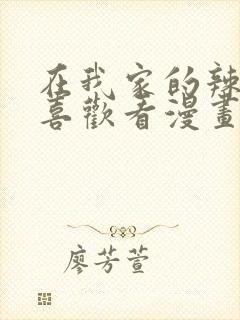 在我家的辣
喜歡看漫畫
廖芳萱